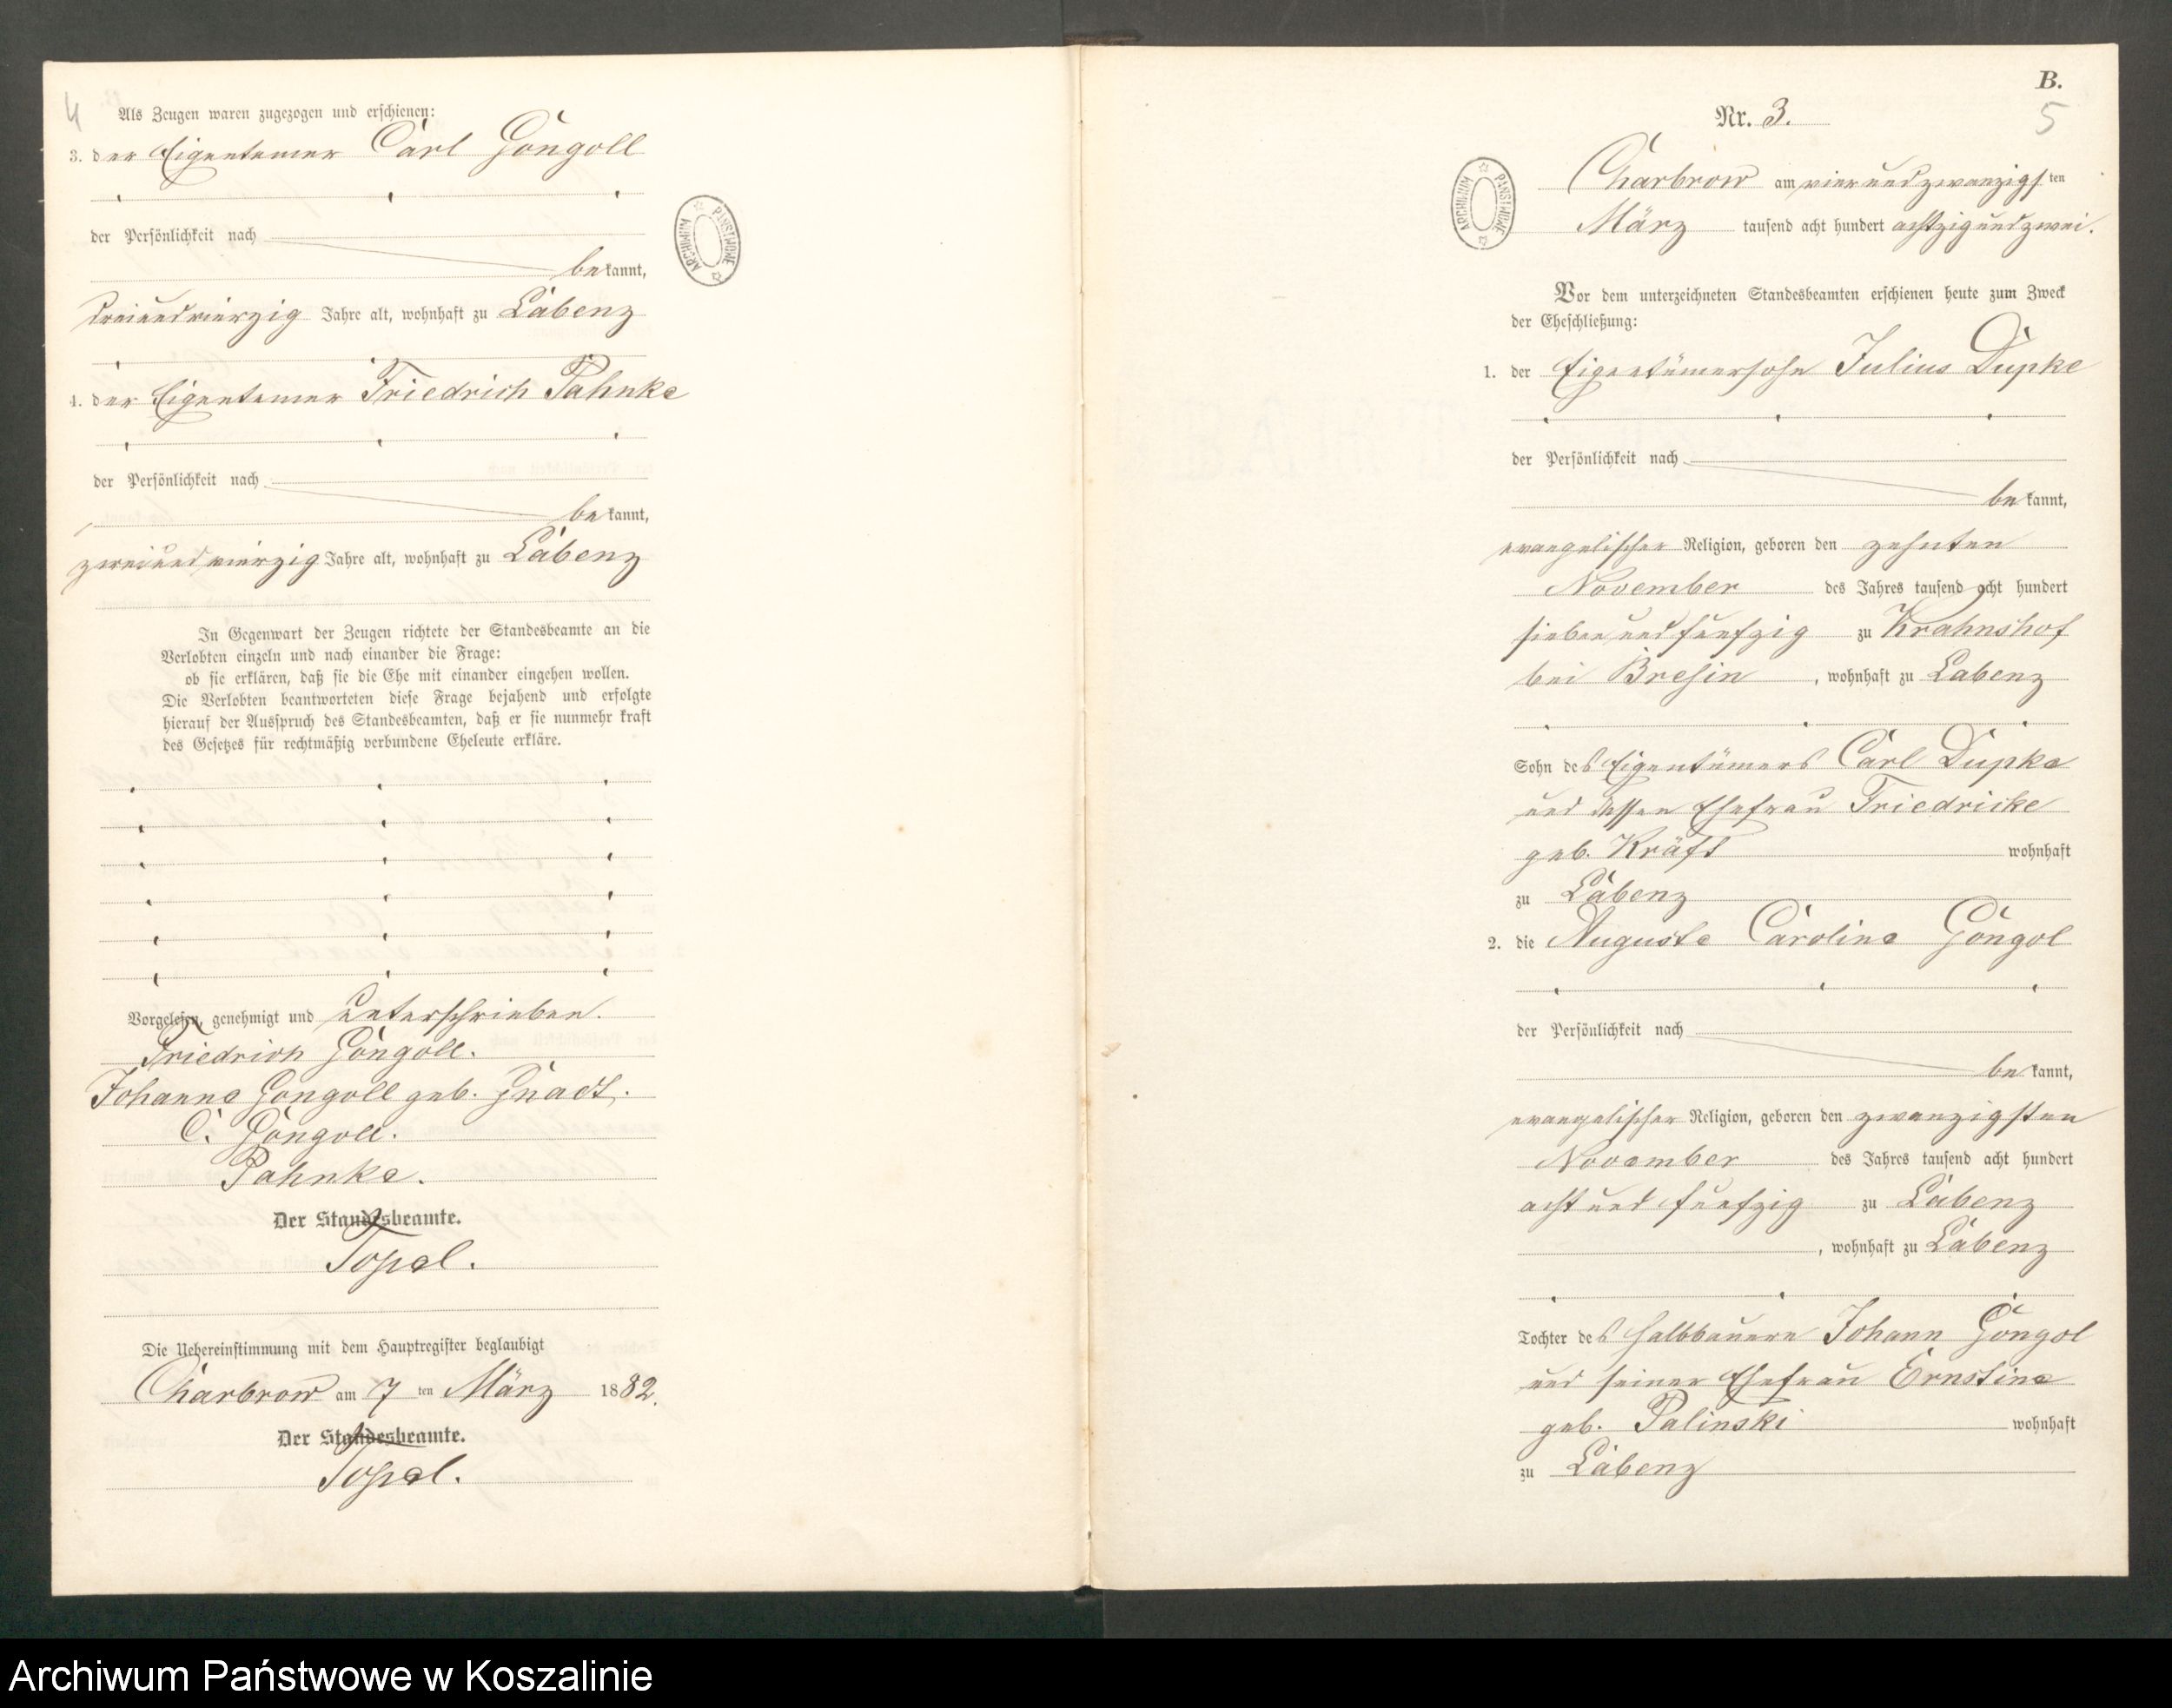 4
Als Zeugen waren zugezogen und erschienen:
3. der Eigentümer Carl Gongoll
der Persönlichkeit nach
bekannt,
dreiundvierzig Jahre alt, wohnhaft zu Labenz
4. der Eigentümer Friedrich Pahnke
der Persönlichkeit nach
bekannt,
zweiundvierzig Jahre alt, wohnhaft zu Labenz
In Gegenwart der Zeugen richtete der Standesbeamte an die
Verlobten einzeln und nach einander die Frage:
ob sie erklären, daß sie die Ehe mit einander eingehen wollen.
Die Verlobten beantworteten diese Frage bejahend und erfolgte
hierauf der Ausspruch des Standesbeamten, daß er sie nunmehr kraft
des Gesetzes für rechtmäßig verbundene Eheleute erkläre.
Vorgelesen, genehmigt und unterschrieben.
Friedrich Gongoll.
Johanne Gongoll geb. Gnadt.
C. Gongoll.
Pahnke.
Der Standesbeamte.
Topel.
Die Uebereinstimmung mit dem Hauptregister beglaubigt
Charbrow am 7 ten März 1882.
Der Standesbeamte.
Topel.
ARCHIWUM PAŃSTWOWE
B.
5
Nr. 3.
ARCHIWUM PAŃSTWOWE
Charbrow am vierundzwanzigsten
März tausend acht hundert achtzigundzwei.
Vor dem unterzeichneten Standesbeamten erschienen heute zum Zweck
der Eheschließung:
1. der Eigentümersohn Julius Dupke
der Persönlichkeit nach
bekannt,
evangelischer Religion, geboren den zehnten
November des Jahres tausend acht hundert
siebenundfunfzig zu Krahnshof
bei Bresin, wohnhaft zu Labenz
Sohn des Eigentümers Carl Dupke
und dessen Ehefrau Friedricke
geb. Kräft wohnhaft
zu Labenz
2. die Auguste Caroline Gongol
der Persönlichkeit nach
bekannt,
evangelischer Religion, geboren den zwanzigsten
November des Jahres tausend acht hundert
acht und funfzig zu Labenz
, wohnhaft zu Labenz
Tochter des Halbbauern Johann Gongol
und seiner Ehefrau Ernstine
geb. Palinski wohnhaft
zu Labenz
Archiwum Państwowe w Koszalinie